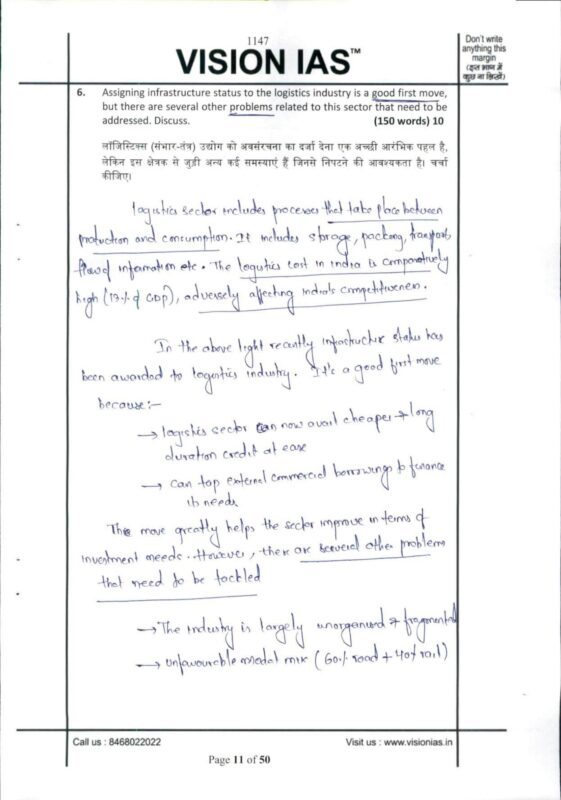 1147
VISION IAS™
Don't write
anything this
margin
(इस भाग में
कुछ ना लिखें)
6. Assigning infrastructure status to the logistics industry is a good first move,
but there are several other problems related to this sector that need to be
addressed. Discuss. (150 words) 10
लॉजिस्टिक्स (संभार-तंत्र) उद्योग को अवसंरचना का दर्जा देना एक अच्छी आरंभिक पहल है,
लेकिन इस क्षेत्रक से जुड़ी अन्य कई समस्याएं हैं जिनसे निपटने की आवश्यकता है। चर्चा
कीजिए।
logistics sector includes processes that take place between
production and consumption. It includes storage, packing, transport,
flow of information etc. The logistics cost in India is comparatively
high (13% of GDP), adversely affecting India's competitiveness.
In the above light recently infrastructure status has
been awarded to logistics industry. It's a good first move
because:-
→ logistics sector can now avail cheaper & long
duration credit at ease
→ can tap external commercial borrowings to finance
its needs
The move greatly helps the sector improve in terms of
investment needs. However, there are several other problems
that need to be tackled
→ The industry is largely unorganised & fragmented
→ Unfavourable modal mix (60% road + 40% rail)
Call us : 8468022022
Visit us : www.visionias.in
Page 11 of 50